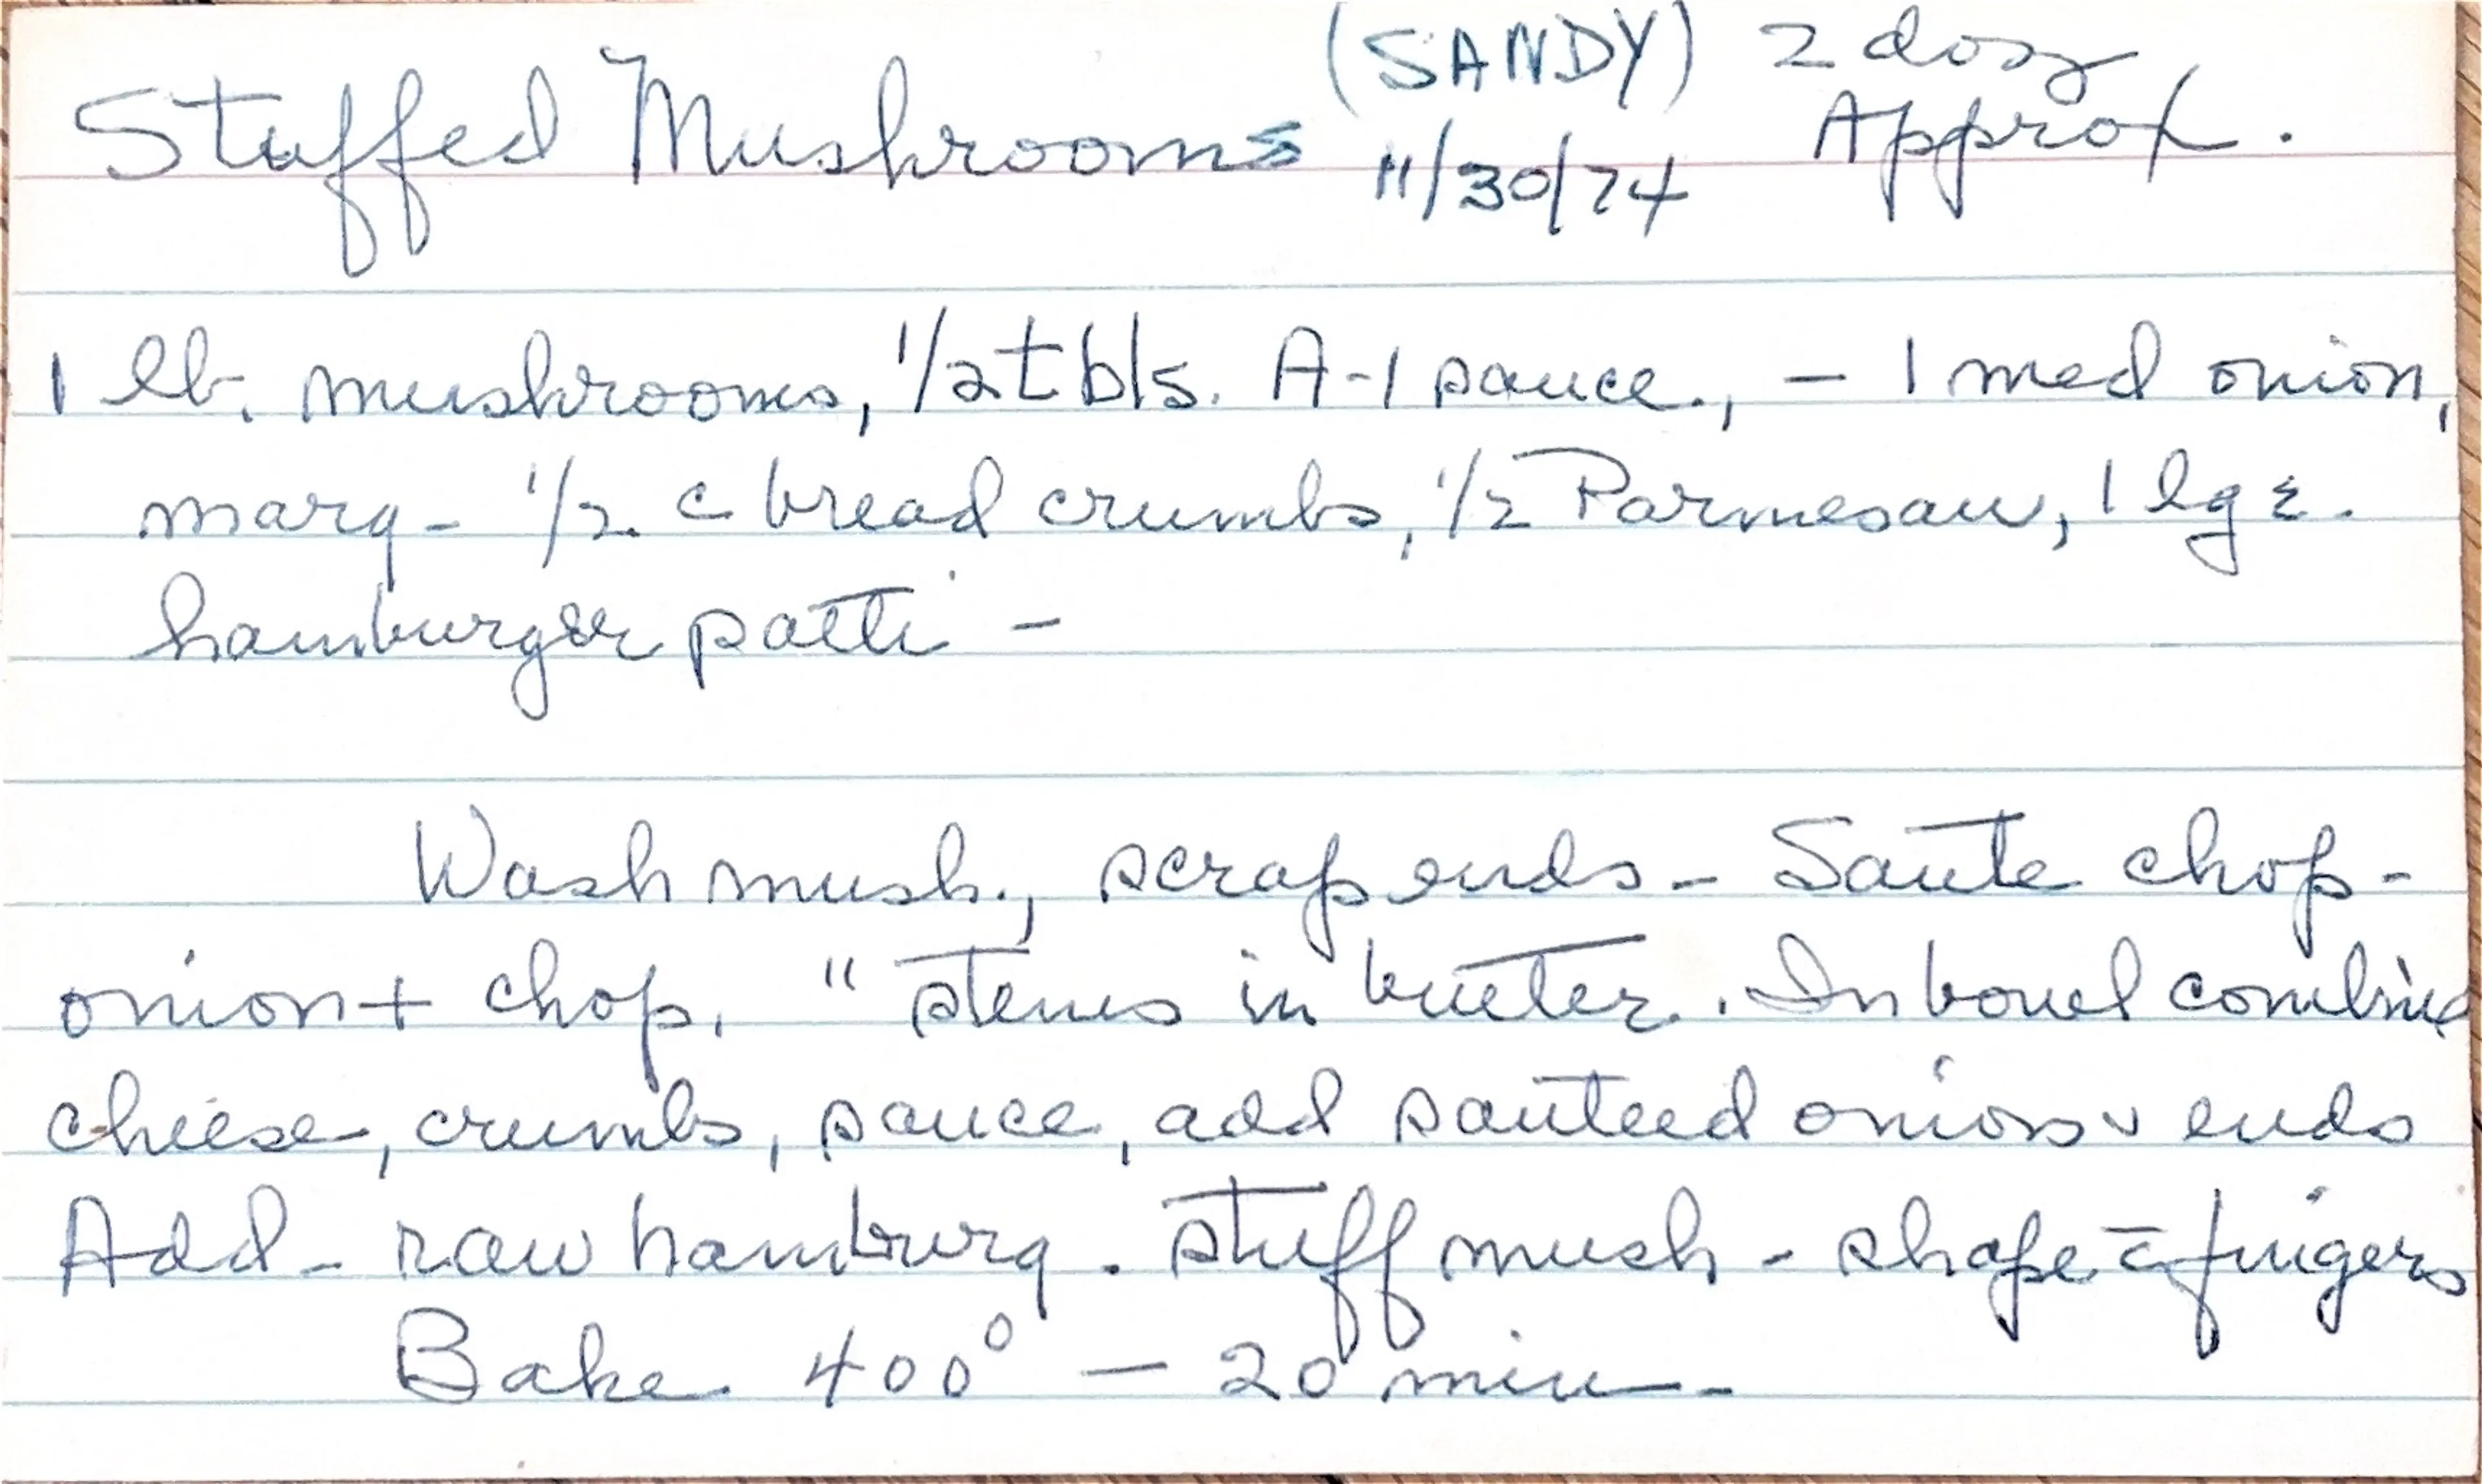 (SANDY) 2 doz
Stuffed Mushrooms 11/30/74 Approx.
1 lb. mushrooms, 1/2 tbls. A-1 sauce., – 1 med onion,
marg – 1/2 c bread crumbs, 1/2 Parmesan, 1 lge.
hamburger patti –
Wash mush., scrap ends – Saute chop –
onion + chop. " stems in butter. In bowl combine
cheese, crumbs, sauce, add sauteed onions & ends
Add – raw hamburg. stuff mush – shape c̄ fingers
Bake 400° – 20 min –